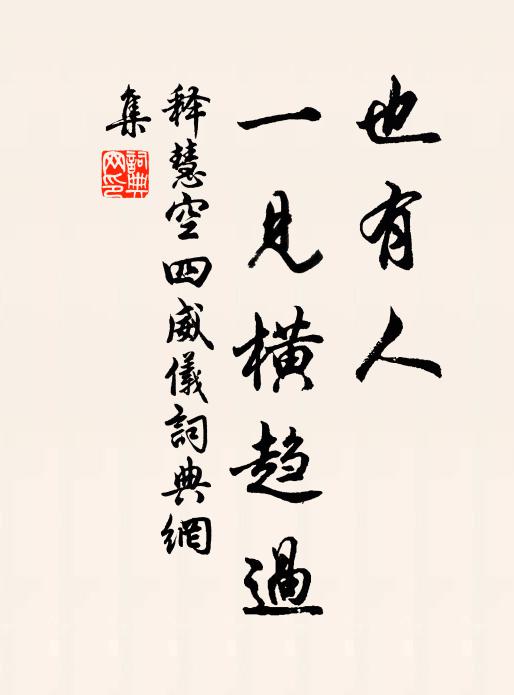 也有人
一見橫趋過
释慧空四威儀詞典網
集
詞典
网印